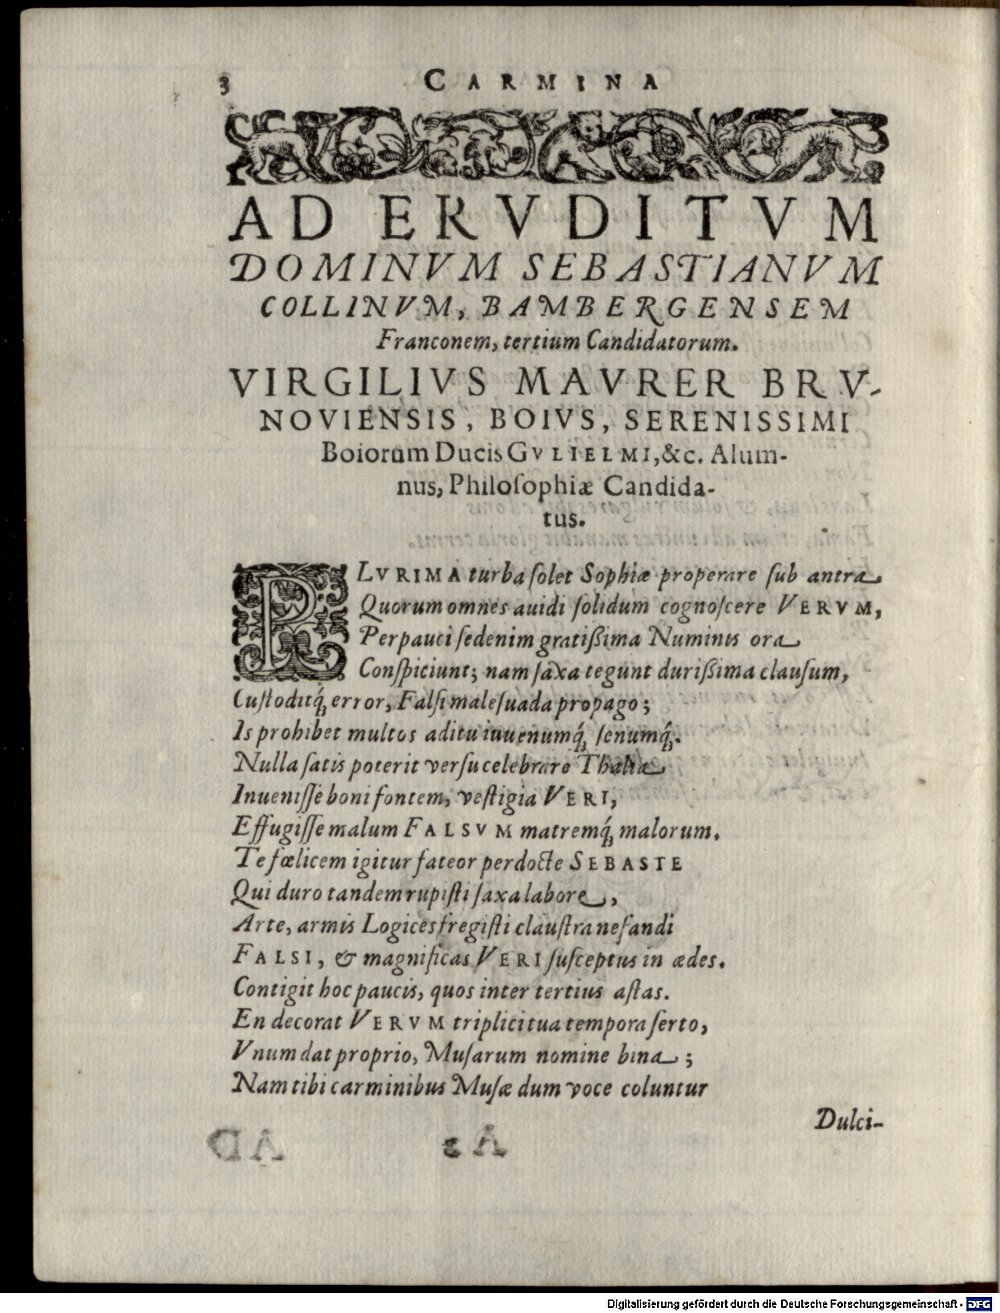 3 CARMINA
AD ERVDITVM
DOMINVM SEBASTIANVM
COLLINVM, BAMBERGENSEM
Franconem, tertium Candidatorum.
VIRGILIVS MAVRER BRV-
NOVIENSIS, BOIVS, SERENISSIMI
Boiorum Ducis GVLIELMI, &c. Alum-
nus, Philoſophiæ Candida-
tus.
PLVRIMA turba ſolet Sophiæ properare ſub antra,
Quorum omnes auidi ſolidum cognoſcere VERVM,
Perpauci ſed enim gratißima Numinis ora
Conſpiciunt; nam ſaxa tegunt durißima clauſum,
Cuſtoditq́; error, Falſi maleſuada propago;
Is prohibet multos aditu iuuenumq́; ſenumq́;.
Nulla ſatis poterit verſu celebrare Thalia
Inueniſſe boni fontem, veſtigia VERI,
Effugiſſe malum FALSVM matremq́; malorum.
Te fœlicem igitur fateor perdocte SEBASTE
Qui duro tandem rupiſti ſaxa labore,
Arte, armis Logices fregiſti clauſtra nefandi
FALSI, & magnificas VERI ſuſceptus in ædes.
Contigit hoc paucis, quos inter tertius aſtas.
En decorat VERVM triplici tua tempora ſerto,
Vnum dat proprio, Muſarum nomine bina;
Nam tibi carminibus Muſæ dum voce coluntur
Dulci-
Digitalisierung gefördert durch die Deutsche Forschungsgemeinschaft - DFG